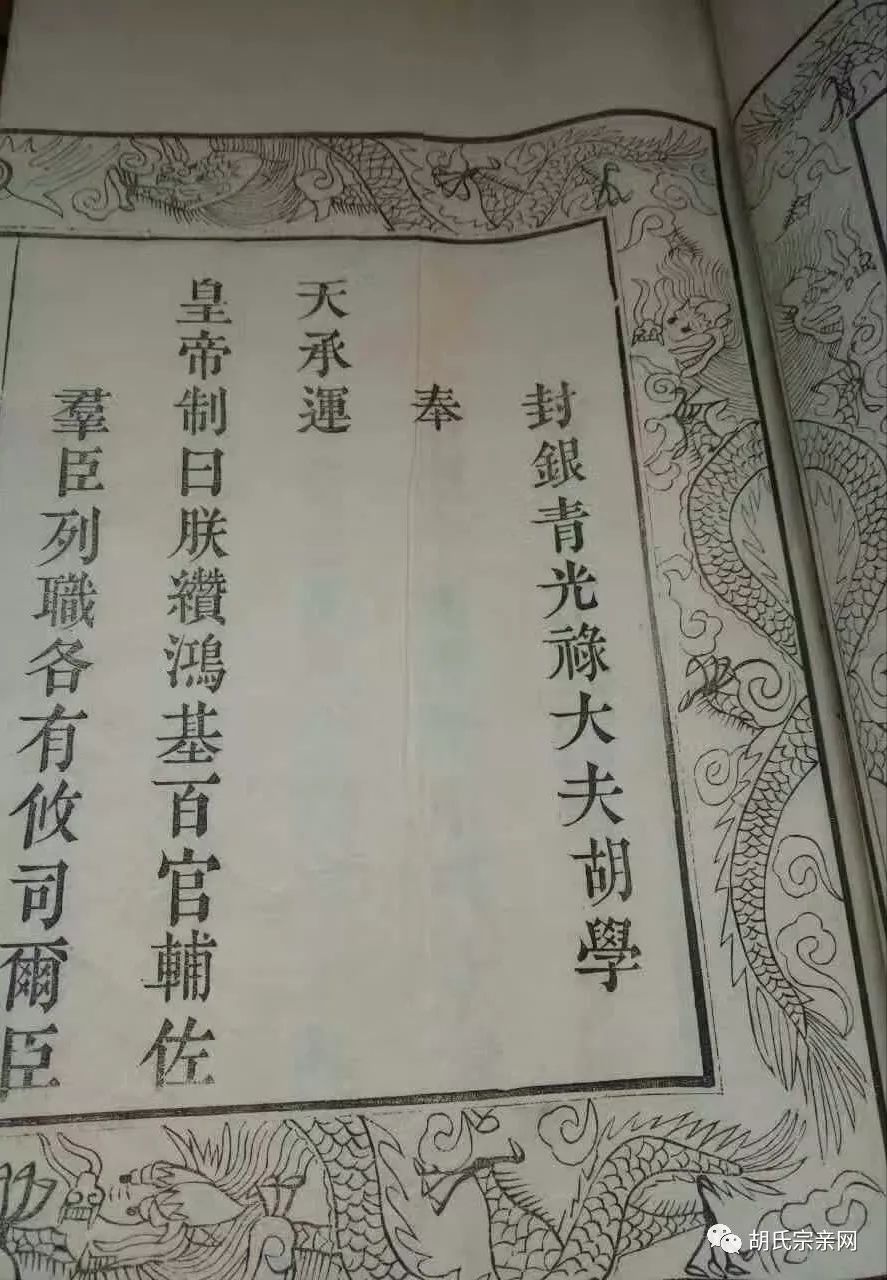 封銀青光祿大夫胡學
奉
天承運
皇帝制曰朕纘鴻基百官輔佐
羣臣列職各有攸司爾臣
胡氏宗亲网